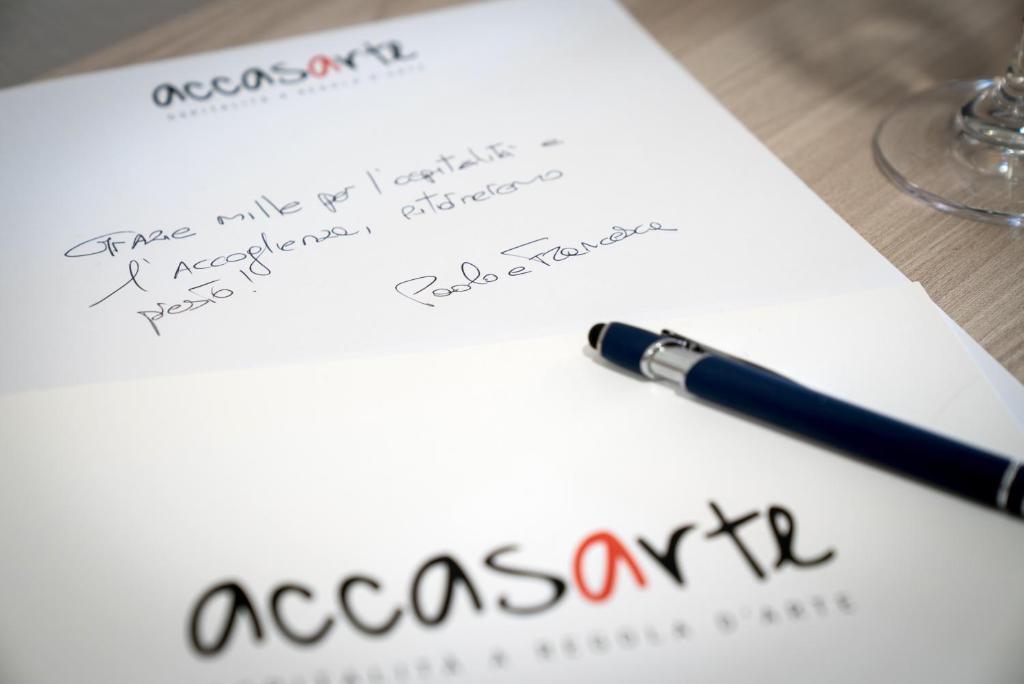 accasarte
OSPITALITÀ A REGOLA D'ARTE
GRAZIE mille per l'ospitalità e
l'Accoglienza, ritorneremo
presto!
Paolo e Francesca
accasarte
OSPITALITÀ A REGOLA D'ARTE